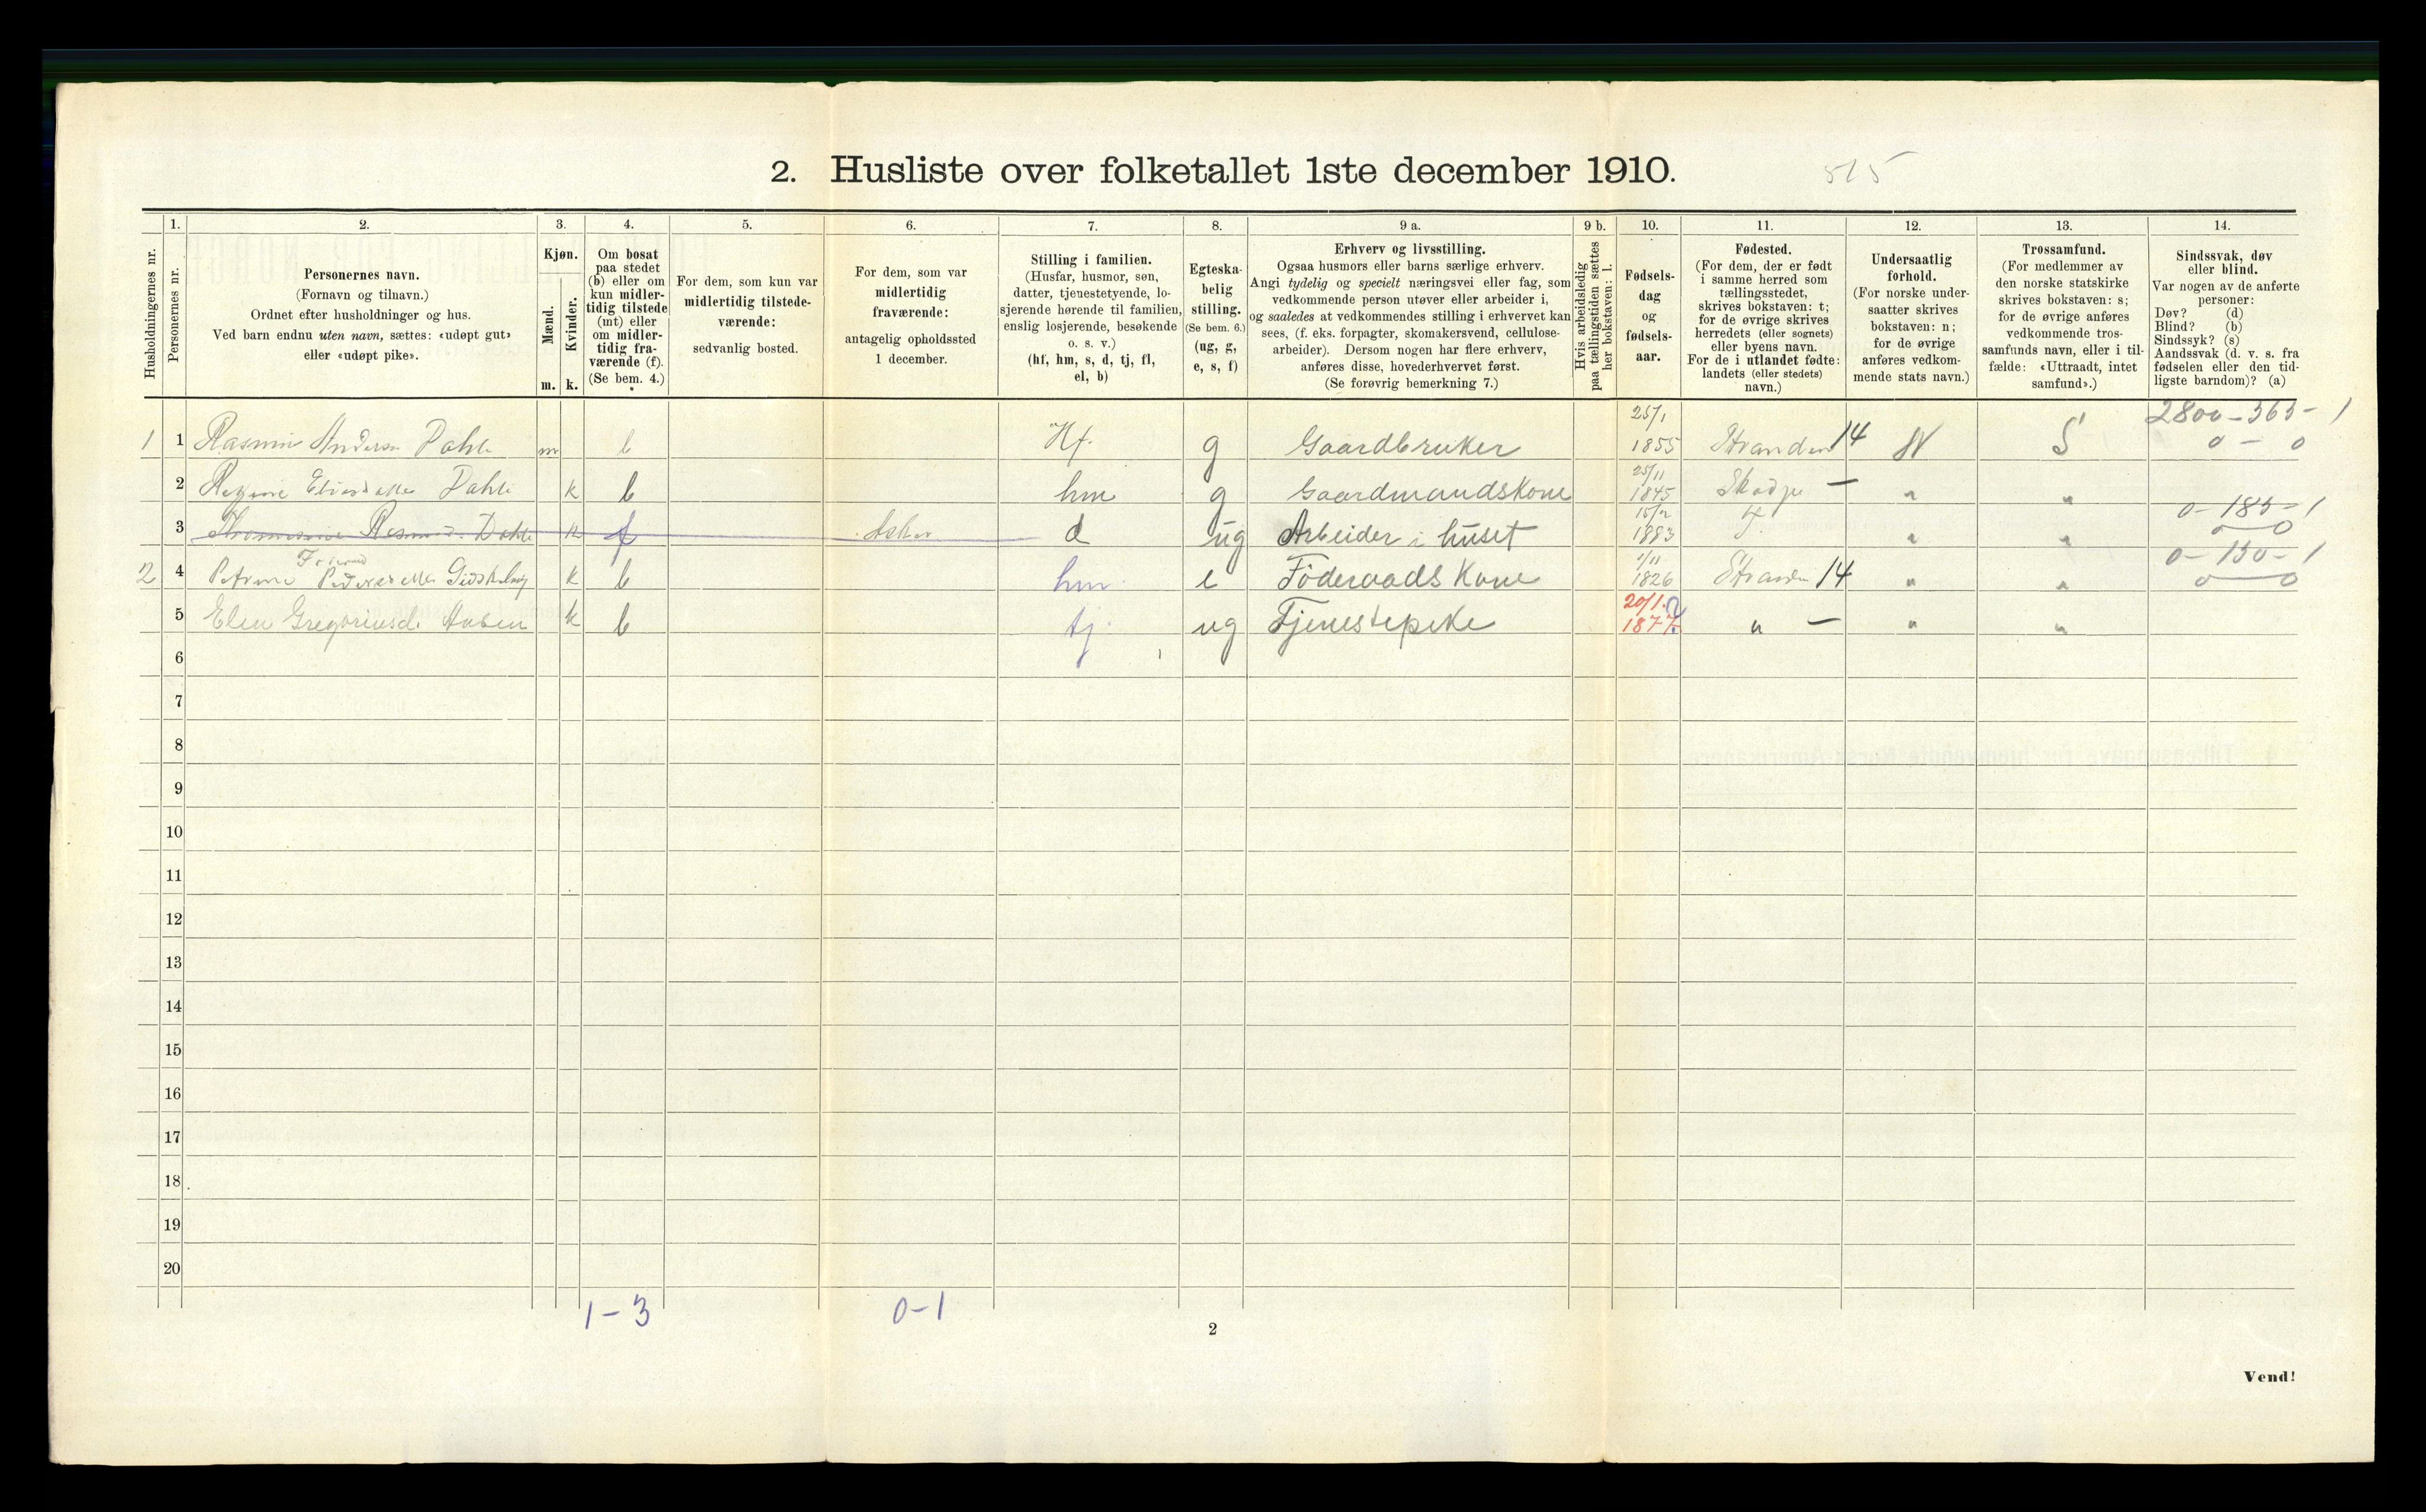 2. Husliste over folketallet 1ste december 1910.
515
Husholdningernes nr.
1.
Personernes nr.
2.
Personernes navn.
(Fornavn og tilnavn.)
Ordnet efter husholdninger og hus.
Ved barn endnu uten navn, sættes: «udøpt gut»
eller «udøpt pike».
3.
Kjøn.
Mænd.
Kvinder.
m. k.
4.
Om bosat
paa stedet
(b) eller om
kun midler-
tidig tilstede
(mt) eller
om midler-
tidig fra-
værende (f).
(Se bem. 4.)
5.
For dem, som kun var
midlertidig tilstede-
værende:
sedvanlig bosted.
6.
For dem, som var
midlertidig
fraværende:
antagelig opholdssted
1 december.
7.
Stilling i familien.
(Husfar, husmor, søn,
datter, tjenestetyende, lo-
sjerende hørende til familien,
enslig losjerende, besøkende
o. s. v.)
(hf, hm, s, d, tj, fl,
el, b)
8.
Egteska-
belig
stilling.
(Se bem. 6.)
(ug, g,
e, s, f)
9 a.
Erhverv og livsstilling.
Ogsaa husmors eller barns særlige erhverv.
Angi tydelig og specielt næringsvei eller fag, som
vedkommende person utøver eller arbeider i,
og saaledes at vedkommendes stilling i erhvervet kan
sees, (f. eks. forpagter, skomakersvend, cellulose-
arbeider). Dersom nogen har flere erhverv,
anføres disse, hovederhvervet først.
(Se forøvrig bemerkning 7.)
9 b.
Hvis arbeidsledig
paa tællingstiden sættes
her bokstaven: l.
10.
Fødsels-
dag
og
fødsels-
aar.
11.
Fødested.
(For dem, der er født
i samme herred som
tællingsstedet,
skrives bokstaven: t;
for de øvrige skrives
herredets (eller sognets)
eller byens navn.
For de i utlandet fødte:
landets (eller stedets)
navn.)
12.
Undersaatlig
forhold.
(For norske under-
saatter skrives
bokstaven: n;
for de øvrige
anføres vedkom-
mende stats navn.)
13.
Trossamfund.
(For medlemmer av
den norske statskirke
skrives bokstaven: s;
for de øvrige anføres
vedkommende tros-
samfunds navn, eller i til-
fælde: «Uttraadt, intet
samfund».)
14.
Sindssvak, døv
eller blind.
Var nogen av de anførte
personer:
Døv? (d)
Blind? (b)
Sindssyk? (s)
Aandssvak (d. v. s. fra
fødselen eller den tid-
ligste barndom)? (a)
25/1 2800-365-1
1 1 Anderss Dahle m b Hf. g Gaardbruker 1855 Stranden 14 N S 0-0
25/11
2 Dahle k b hm g Gaardmandskone 1845 Skodje — " "
15/2 0-185-1
3 Dahle k f d ug Arbeider i huset 1883 T. " " 0-0
1/11 0-150-1
2 4 k b hm e Föderaads Kone 1826 Stranden 14 " " 0-0
20/1 ?
5 Elen Gregoriusd. k b tj. ug Tjenestepike 1877 " — " "
6
7
8
9
10
11
12
13
14
15
16
17
18
19
20
1-3 0-1
2
Vend!